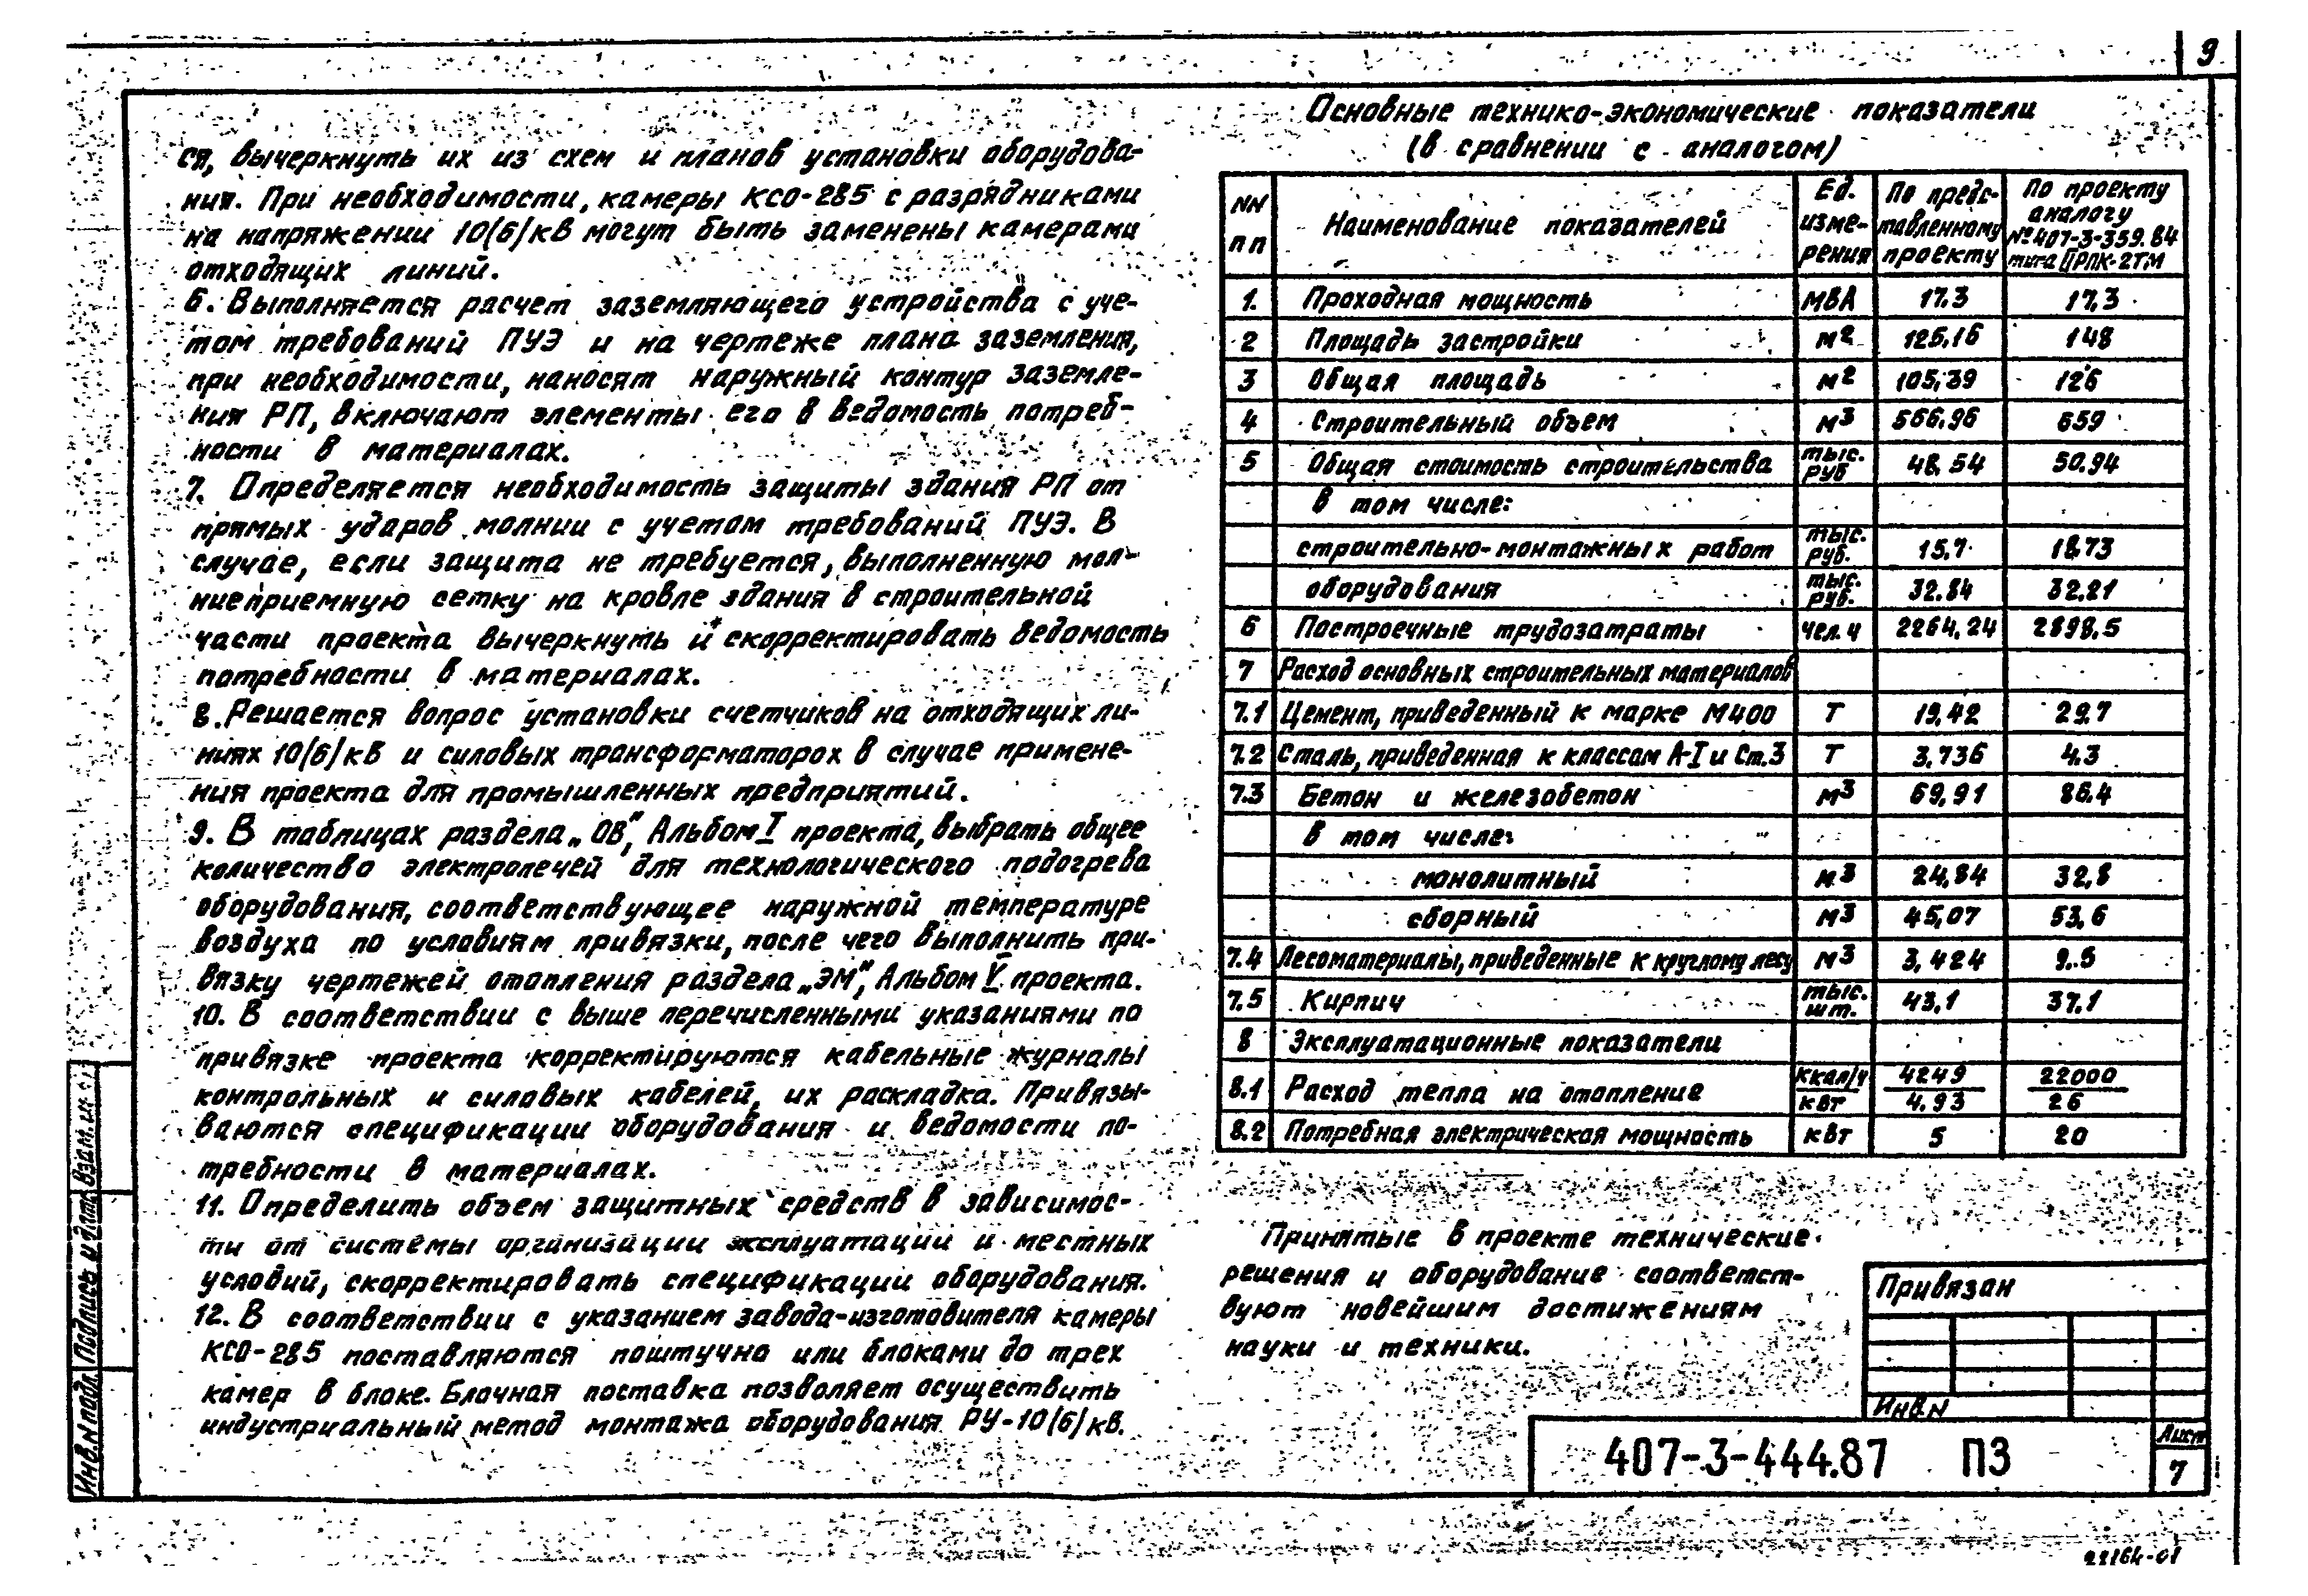 9
ся, вычеркнуть их из схем и планов установки оборудова-
ния. При необходимости, камеры КСО-285 с разрядниками
на напряжении 10(6)кВ могут быть заменены камерами
отходящих линий.
6. Выполняется расчет заземляющего устройства с уче-
том требований ПУЭ и на чертеже плана заземления,
при необходимости, наносят наружный контур заземле-
ния РП, включают элементы его в ведомость потреб-
ности в материалах.
7. Определяется необходимость защиты здания РП от
прямых ударов молнии с учетом требований ПУЭ. В
случае, если защита не требуется, выполненную мол-
ниеприемную сетку на кровле здания в строительной
части проекта вычеркнуть и скорректировать ведомость
потребности в материалах.
8. Решается вопрос установки счетчиков на отходящих ли-
ниях 10(6)кВ и силовых трансформаторох в случае примене-
ния проекта для промышленных предприятий.
9. В таблицах раздела „ОВ", Альбом I проекта, выбрать общее
количество электропечей для технологического подогрева
оборудования, соответствующее наружной температуре
воздуха по условиям привязки, после чего выполнить при-
вязку чертежей отопления раздела „ЭМ", Альбом V проекта.
10. В соответствии с выше перечисленными указаниями по
привязке проекта корректируются кабельные журналы
контрольных и силовых кабелей, их раскладка. Привязы-
ваются спецификации оборудования и ведомости по-
требности в материалах.
11. Определить объем защитных средств в зависимос-
ти от системы организации эксплуатации и местных
условий, скорректировать спецификации оборудования.
12. В соответствии с указанием завода-изготовителя камеры
КСО-285 поставляются поштучно или блоками до трех
камер в блоке. Блочная поставка позволяет осуществить
индустриальный метод монтажа оборудования РУ-10(6)кВ.
Основные технико-экономические показатели
(в сравнении с аналогом)
NN пп Наименование показателей Ед. изме-рения По предс-тавленному проекту По проекту аналогу №407-3-359.84 типа ЦРПК-2ТМ
1. Проходная мощность МВА 17.3 17,3
2 Площадь застройки м2 125,16 148
3 Общая площадь м2 105,39 126
4 Строительный объем м3 566,96 659
5 Общая стоимость строительства тыс. руб 48,54 50.94
в том числе:
строительно-монтажных работ тыс. руб. 15.7 18,73
оборудования тыс. руб. 32.84 32.21
6 Построечные трудозатраты чел.ч 2264,24 2898,5
7 Расход основных строительных материалов
7.1 Цемент, приведенный к марке М400 Т 19,42 29.7
7.2 Сталь, приведенная к классам А-I и Ст.3 Т 3,736 4.3
7.3 Бетон и железобетон м3 69,91 86.4
в том числе:
монолитный м3 24,84 32,8
сборный м3 45,07 53,6
7.4 Лесоматериалы, приведенные к круглому лесу м3 3,424 9.5
7.5 Кирпич тыс. шт. 43,1 37,1
8 Эксплуатационные показатели
8.1 Расход тепла на отопление ккал/ч квт 4249 4.93 22000 26
8.2 Потребная электрическая мощность квт 5 20
Принятые в проекте технические
решения и оборудование соответст-
вуют новейшим достижениям
науки и техники.
Привязан
Инв.N
407-3-444.87 ПЗ
Лист
7
Инв.N подл.
Подпись и дата
Взам.ин
22164-01